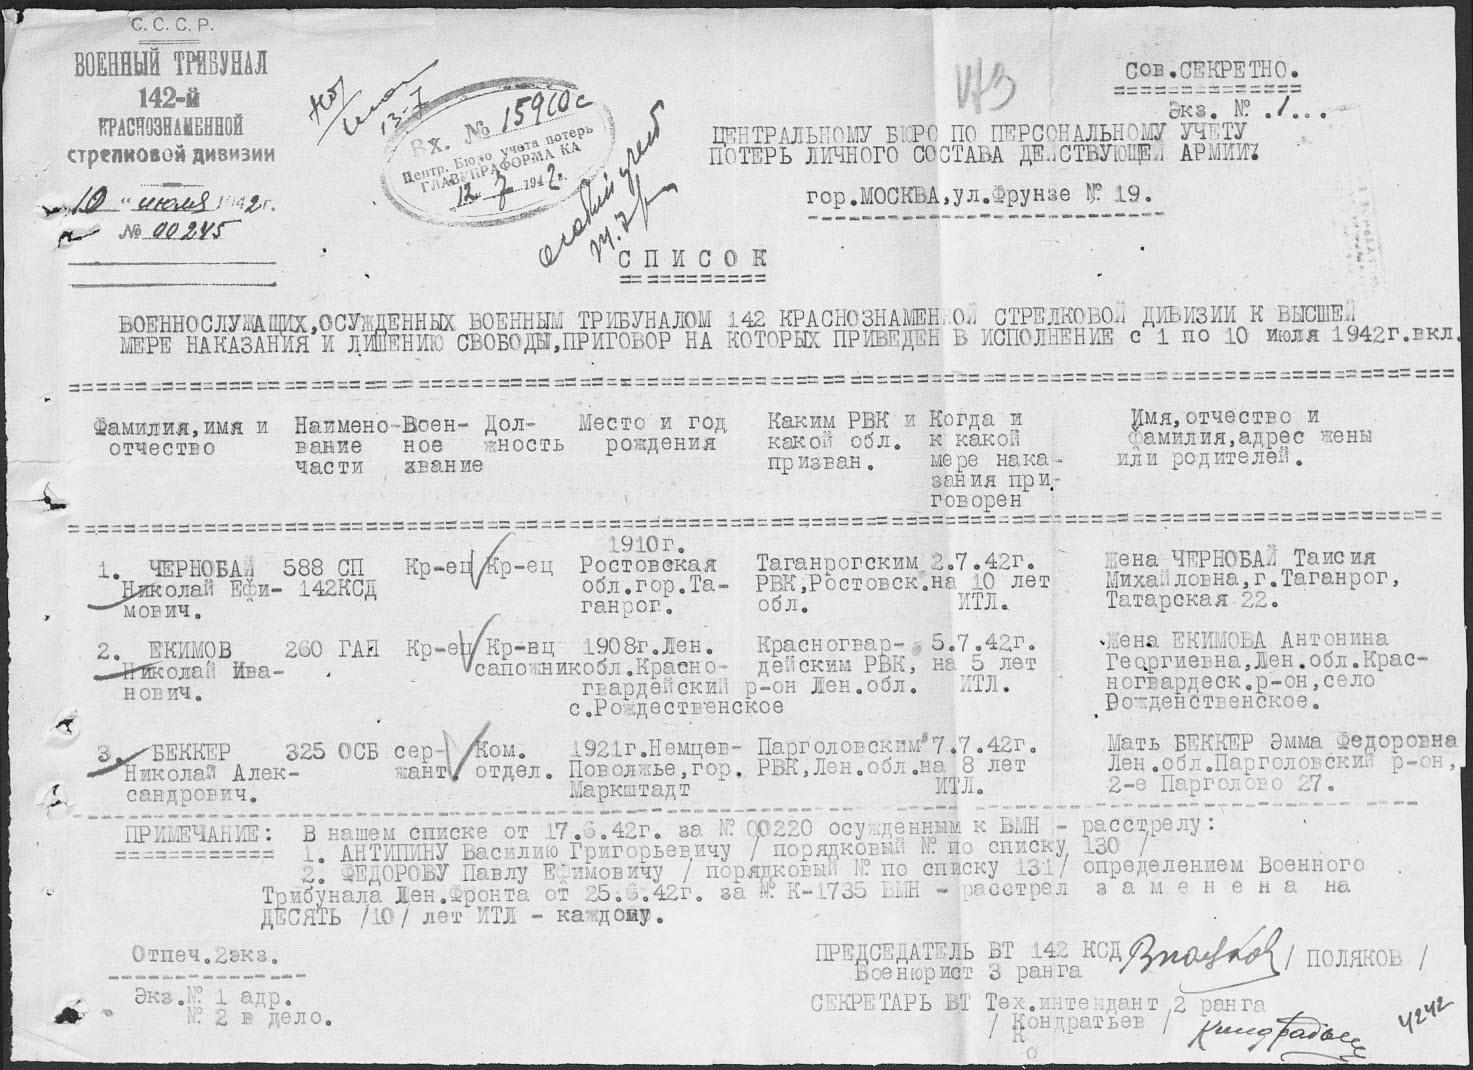 С.С.С.Р.
ВОЕННЫЙ ТРИБУНАЛ
142-й
КРАСНОЗНАМЕННОЙ
стрелковой дивизии
"10" июля 1942г.
№ 00245
13-7
Вх. № 15910с
Центр. Бюро учета потерь
ГЛАВУПРАФОРМА КА
12 7 1942г.
особый учет
Сов.СЕКРЕТНО.
Экз. № .1...
ЦЕНТРАЛЬНОМУ БЮРО ПО ПЕРСОНАЛЬНОМУ УЧЕТУ
ПОТЕРЬ ЛИЧНОГО СОСТАВА ДЕЙСТВУЮЩЕЙ АРМИИ.
гор.МОСКВА,ул.Фрунзе № 19.
СПИСОК
ВОЕННОСЛУЖАЩИХ,ОСУЖДЕННЫХ ВОЕННЫМ ТРИБУНАЛОМ 142 КРАСНОЗНАМЕННОЙ СТРЕЛКОВОЙ ДИВИЗИИ К ВЫСШЕЙ
МЕРЕ НАКАЗАНИЯ И ЛИШЕНИЮ СВОБОДЫ,ПРИГОВОР НА КОТОРЫХ ПРИВЕДЕН В ИСПОЛНЕНИЕ с 1 по 10 июля 1942г.вкл.
Фамилия,имя и Наимено- Воен- Дол- Место и год Каким РВК и Когда и Имя,отчество и
отчество вание ное жность рождения какой обл. к какой фамилия,адрес жены
части звание призван. мере нака- или родителей.
зания при-
говорен
1910г.
1. ЧЕРНОБАЙ 588 СП Кр-ец Кр-ец Ростовская Таганрогским 2.7.42г. Жена ЧЕРНОБАЙ Таисия
Николай Ефи- 142КСД обл.гор.Та- РВК,Ростовск. на 10 лет Михайловна,г.Таганрог,
мович. ганрог. обл. ИТЛ. Татарская 22.
2. ЕКИМОВ 260 ГАП Кр-ец Кр-вц 1908г.Лен. Красногвар- 5.7.42г. Жена ЕКИМОВА Антонина
Николай Ива- сапожник обл.Красно- дейским РВК, на 5 лет Георгиевна,Лен.обл.Крас-
нович. гвардейский р-он Лен.обл. ИТЛ. ногвардеск.р-он,село
с.Рождественское Рожденственское.
3. БЕККЕР 325 ОСБ сер- Ком. 1921г.Немцев- Парголовским 7.7.42г. Мать БЕККЕР Эмма Федоровна
Николай Алек- жант. отдел. Поволжье,гор. РВК,Лен.обл. на 8 лет Лен.обл.Парголовский р-он,
сандрович. Маркштадт ИТЛ. 2-е Парголово 27.
ПРИМЕЧАНИЕ: В нашем списке от 17.6.42г. за № 00220 осужденным к ВМН - расстрелу:
1. АНТИПИНУ Василию Григорьевичу / порядковый № по списку 130 /
2. ФЕДОРОВУ Павлу Ефимовичу / порядковый № по списку 131/ определением Военного
Трибунала Лен.Фронта от 25.6.42г. за № К-1735 ВМН - расстрел заменена на
ДЕСЯТЬ /10/ лет ИТЛ - каждому.
Отпеч.2экз.
Экз.№ 1 адр.
№ 2 в дело.
ПРЕДСЕДАТЕЛЬ ВТ 142 КСД / ПОЛЯКОВ /
Военюрист 3 ранга
СЕКРЕТАРЬ ВТ Тех.интендант 2 ранга
/ Кондратьев /
4242